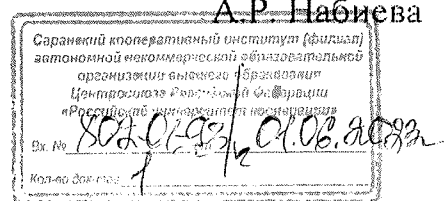 А.Р. Набиева
Саранский кооперативный институт (филиал)
автономной некоммерческой образовательной
организации высшего образования
Центросоюза Российской Федерации
«Российский университет кооперации»
Вх. № 01.06.2023г.
Кол-во док-тов 1